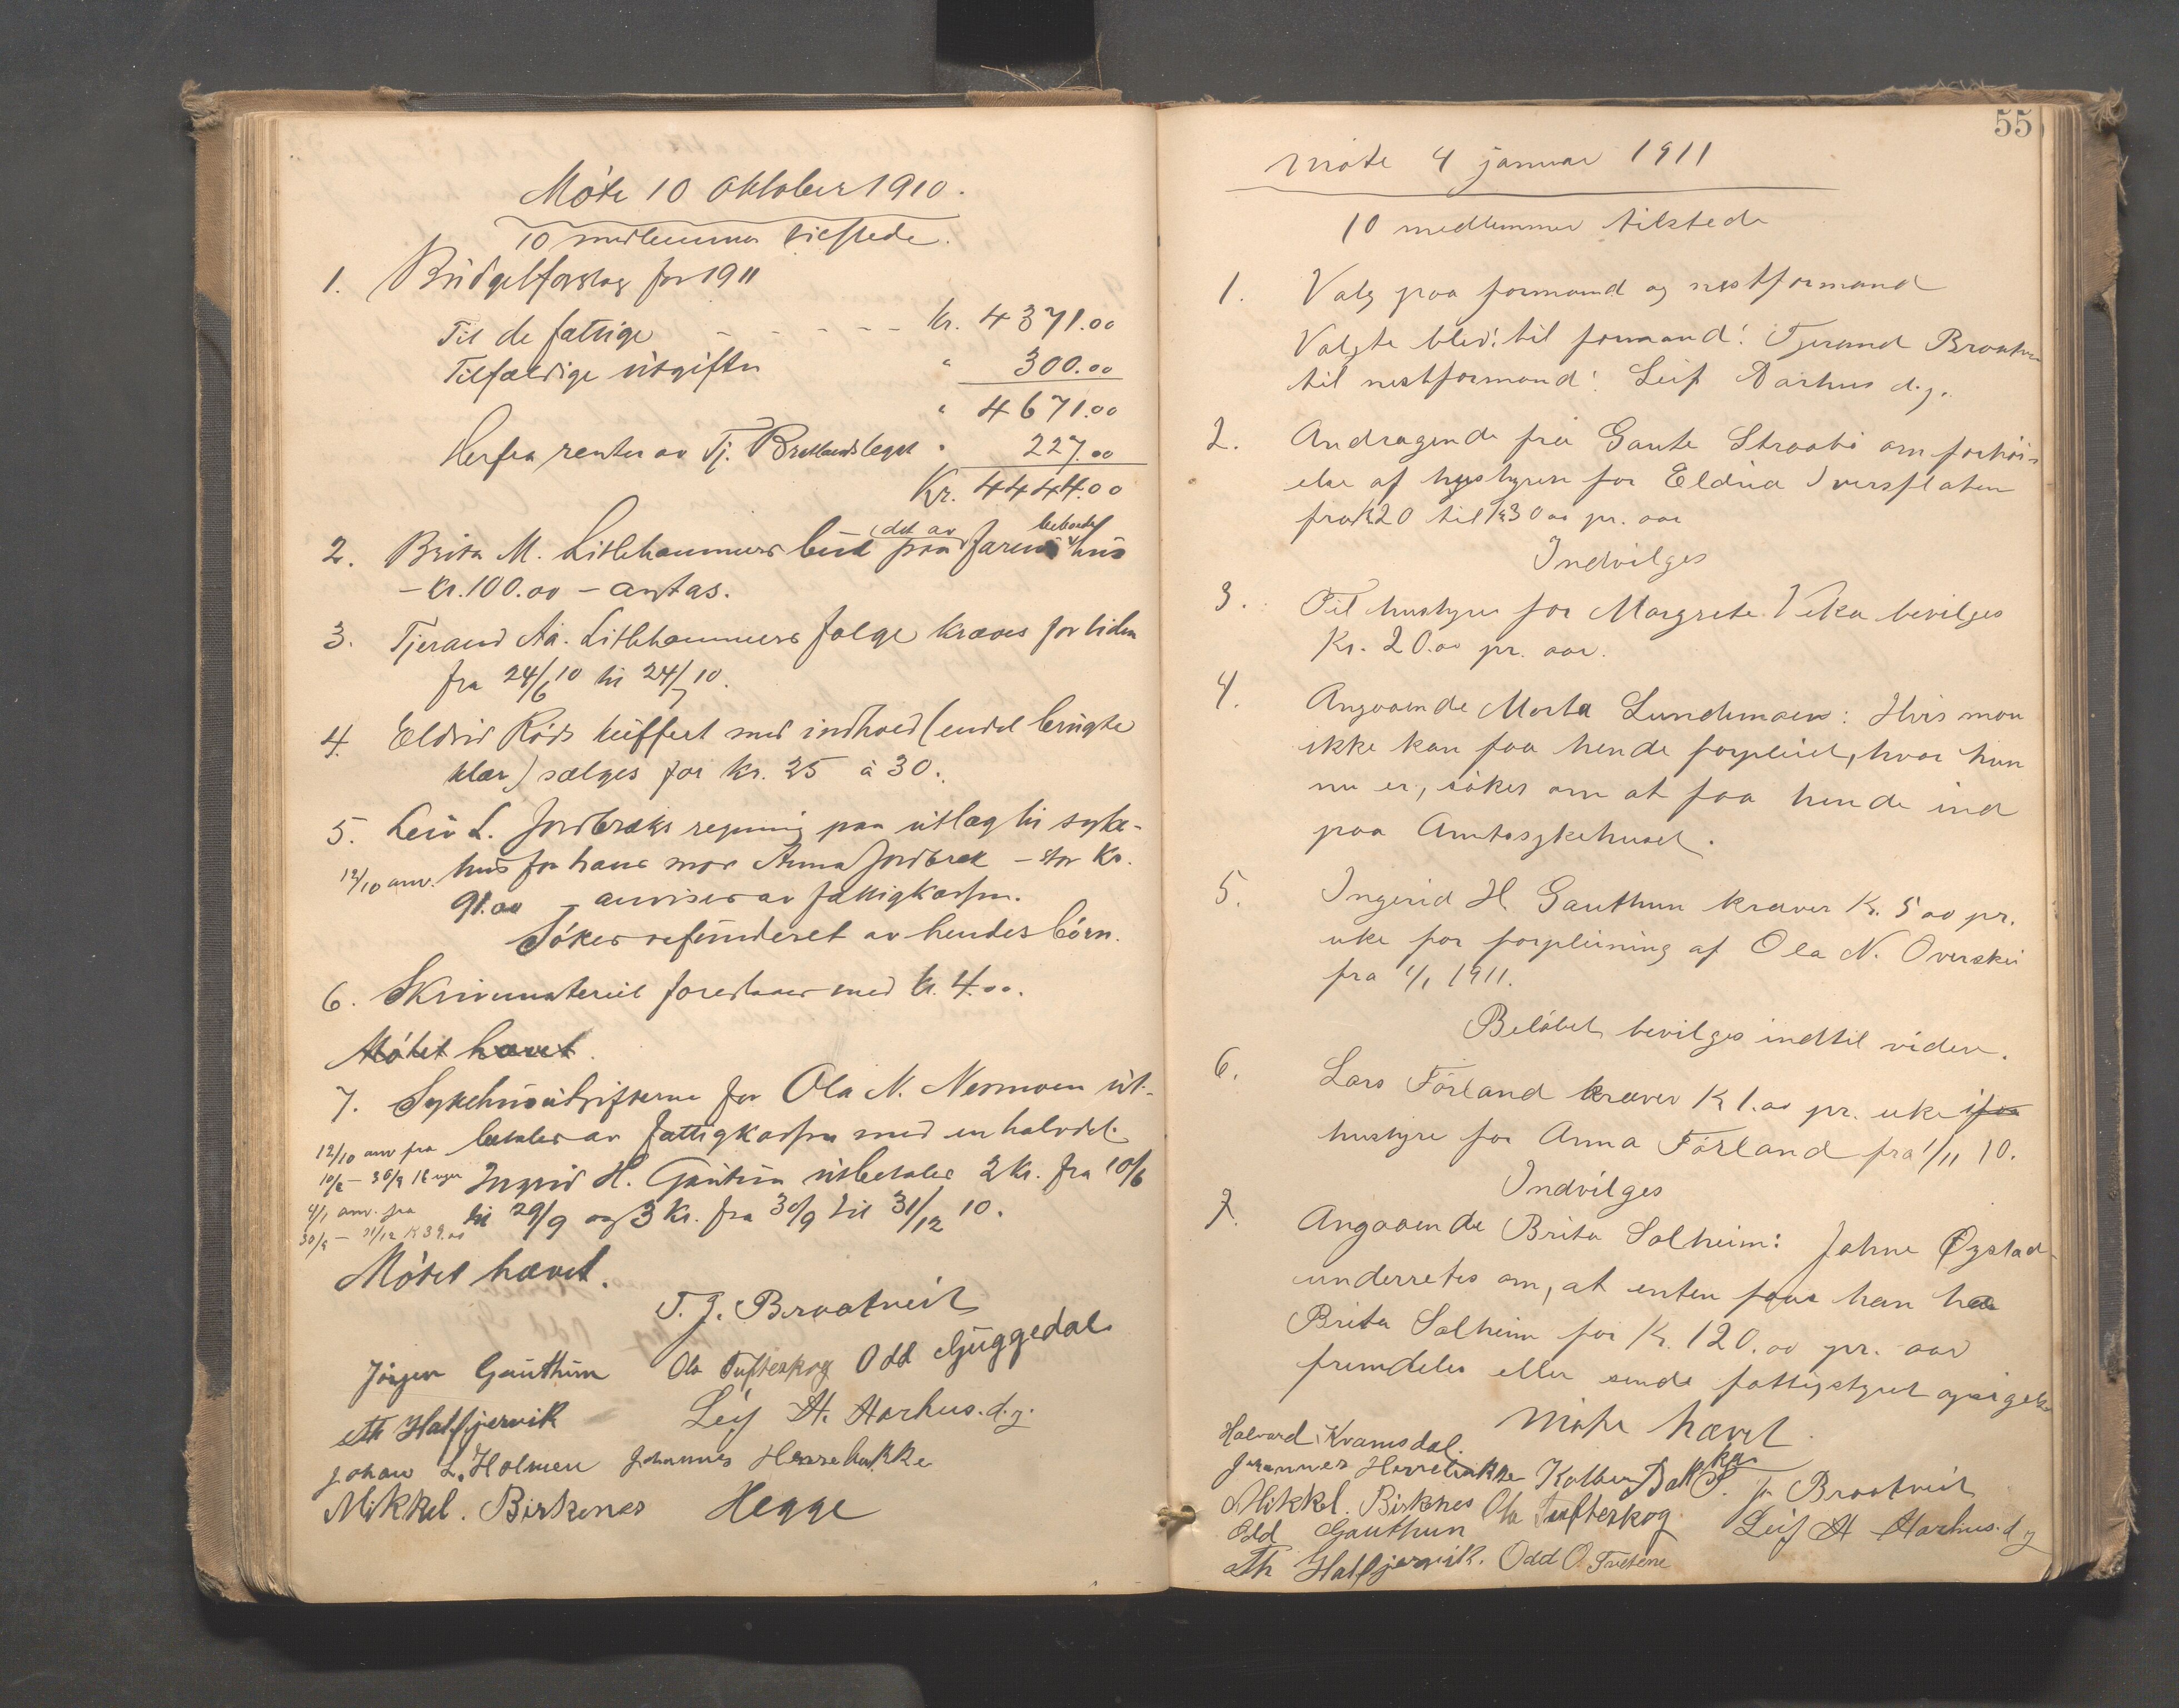 Møte 10 oktober 1910.
10 medlemmer tilstede.
1. Budgetforslag for 1911
Til de fattige - - - - - kr. 4371.00
Tilfældige utgifter " 300.00
" 4671.00
Herfra renter av Tj. Bratlandslegat " 227.00
Kr. 4444.00
2. Brita M. Litlehammers bud paa del av hus
- kr. 100.00 - antas.
3. Tjerand Aa. Litlehammers følge kræves for tiden
fra 24/6 10 til 24/7 10.
4. Eldrid Røds kuffert med indhold (endel brugte
klær) sælges for kr. 25 à 30.
5. Leiv L. Jordbræks regning paa utlæg til syke-
12/10 anv. hus for hans mor Anna Jordbræk - stor kr.
91.00 - anvises av fattigkassen.
Søkes refunderet av hendes børn.
6. Skrivemateriel med kr. 4.00.
Møtet hævet.
7. Sykehusutgifterne for Ola N. Nesmoen ut-
12/10 anv fra betales av fattigkassen med en halvdel.
10/6 - 30/9 16 uger Ingrid H. Gautun utbetales 2 kr. fra 10/6
4/1 anv. fra til 29/9 og 3 kr. fra 30/9 til 31/12 10.
30/9 - 31/12 K 39.00
Møtet hævet.
T. J. Brootveit
Jørgen Gauthun Ola Tufteskog Odd Ljuggedal
Th Halfjervik Leif H. Aarhus. d.y.
Johan L. Holmen Johannes Herrebakke
Mikkel. Birkenes Hegge
55
Møte 4 januar 1911
10 medlemmer tilstede
1. Valg paa formand og nestformand
Valgte blev: til formand: Tjerand Brootveit
til nestformand: Leif Aarhus d.y.
2. Andragende fra Gaute Straabø om forhøi-
else af hustyren for Eldrid Iversflaten
fra K 20 til K 30 00 pr. aar
Indvilges
3. Til hustyre for Margrete Veka bevilges
Kr. 20.00 pr. aar.
4. Angaaende Marta Lundemoen: Hvis man
ikke kan faa hende forpleiet, hvor hun
nu er, søkes om at faa hende ind
paa Amtssykehuset.
5. Ingerid H. Gauthun kræver K. 5 00 pr.
uke for forpleining af Ola N. Overskei
fra 1/1 1911.
Beløbet bevilges indtil videre.
6. Lars Førland kræver K 1.00 pr. uke i for
hustyre for Anna Førland fra 1/11 10.
Indvilges
7. Angaaende Brita Solheim: Johne Øystad
underretes om, at enten faar han ha
Brita Solheim for Kr. 120.00 pr. aar
fremdeles eller sende fattigstyret opsigelse
Møte hævet.
Halvard Kvamsdal.
Johannes Herrebakke Kolbein Bakka T. J. Brootveit
Mikkel. Birkenes Ola Tufteskog. Leif H Aarhus. d y
Odd Gauthun
Th Halfjervik. Odd O. Tveitene